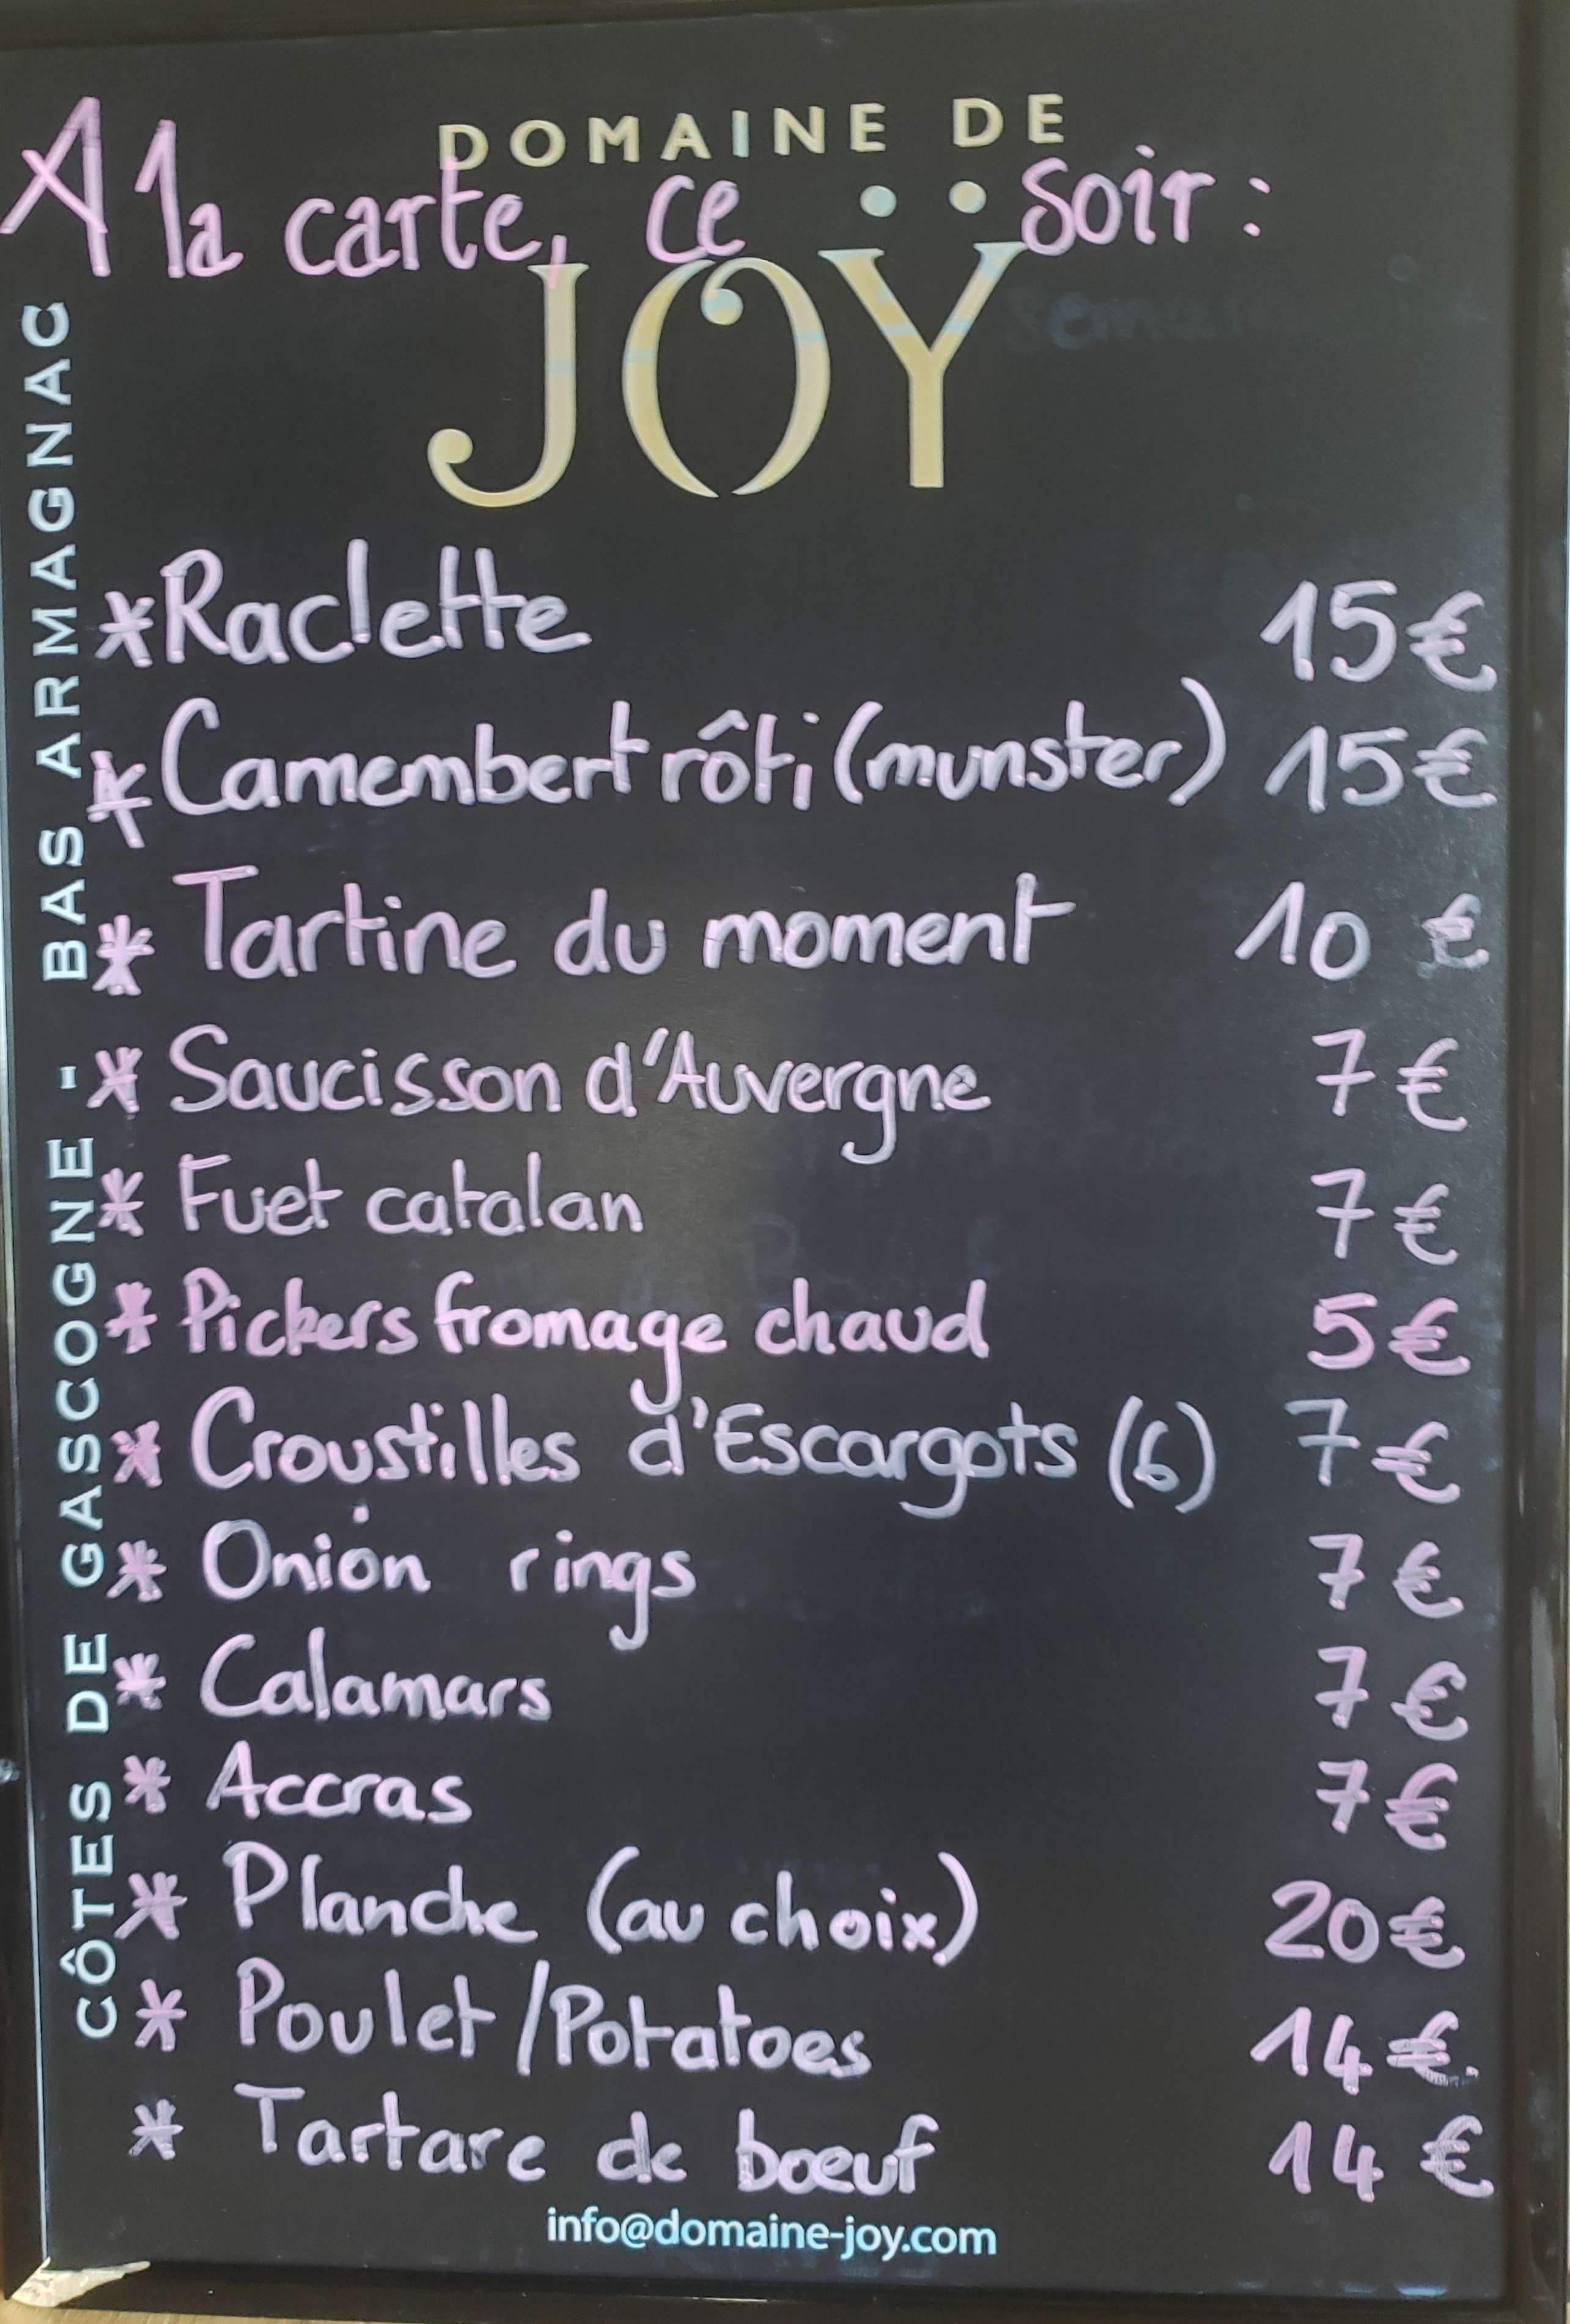 DOMAINE DE
A la carte, ce soir :
JOŸ
CÔTES DE GASCOGNE - BAS ARMAGNAC
* Raclette 15€
* Camembert rôti (munster) 15€
* Tartine du moment 10 €
* Saucisson d'Auvergne 7€
* Fuet catalan 7€
* Pickers fromage chaud 5€
* Croustilles d'Escargots (6) 7€
* Onion rings 7€
* Calamars 7€
* Accras 7€
* Planche (au choix) 20€
* Poulet/Potatoes 14€
* Tartare de bœuf 14€
info@domaine-joy.com